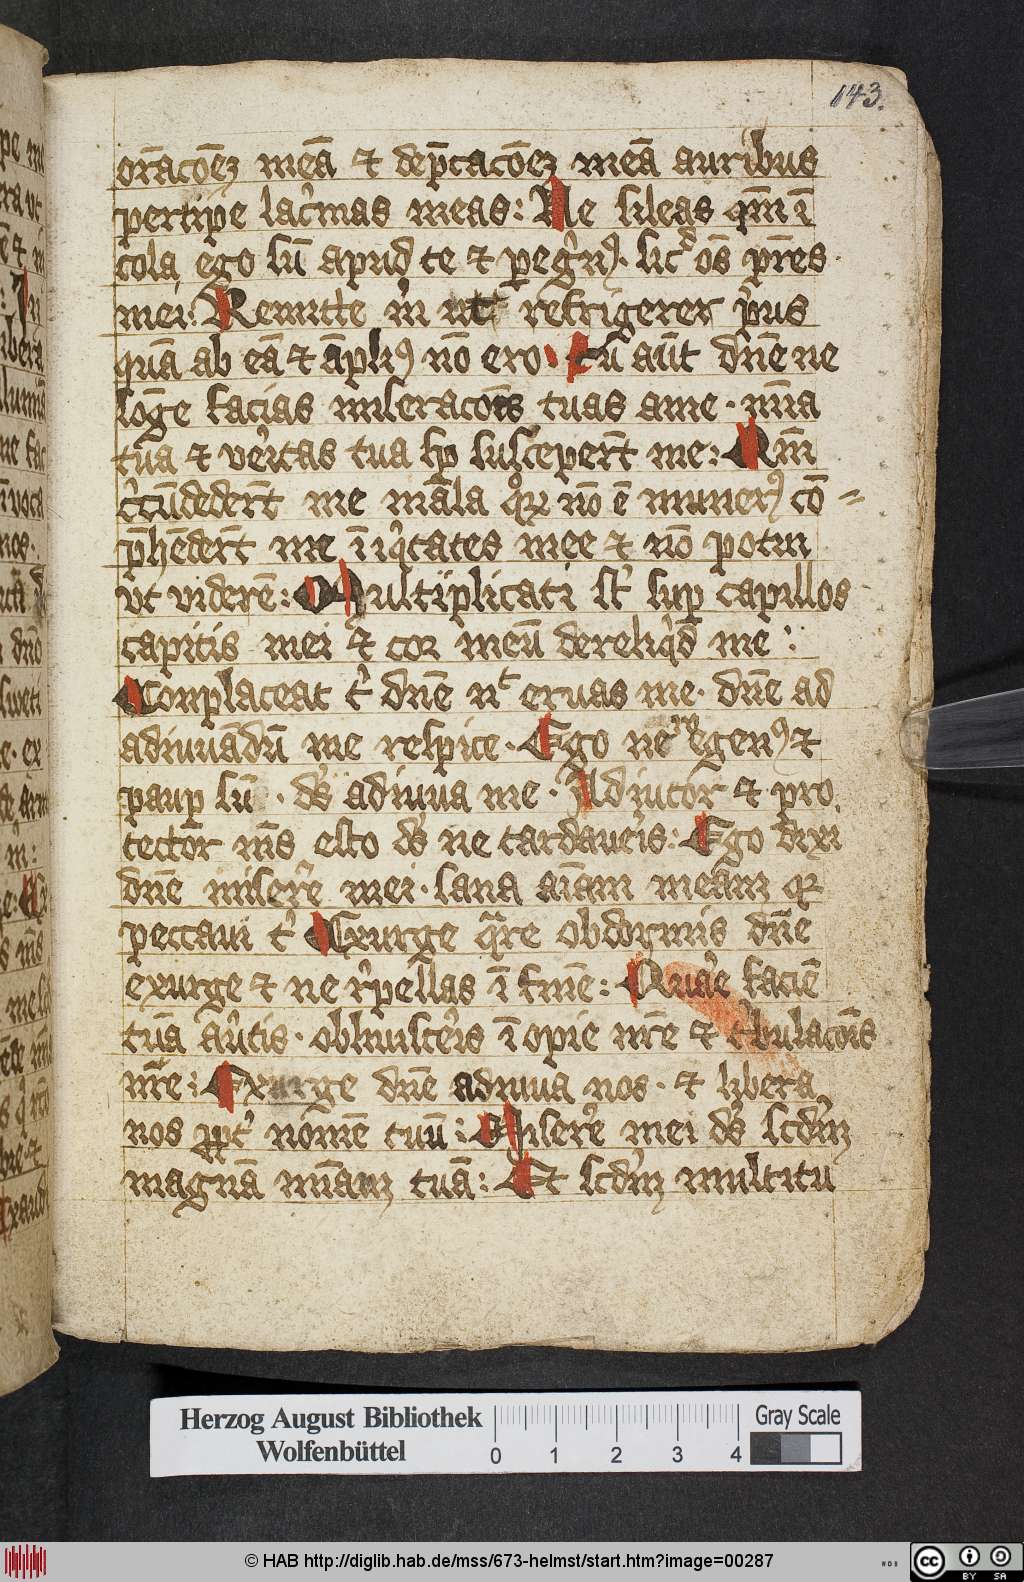 143.
or̄acōeʒ meā ⁊ dep̄cacōeʒ meā auribus
percipe lac̓mas meas : Ne sileas qm̄ ī
cola ego sū apud te ⁊ peg̓n⁹ · sic̄ os̄ pr̄es ·
mei : Remitte m̓ ut refrigerer p̓us
quā ab eā ⁊ āpli⁹ nō ero · Tu aūt dn̄e ne
lōge facias miseracōes tuas a me · mīa
tua ⁊ ver̓itas tua sp̄ susceper̄t me : Qm̄
c̓cūdeder̄t me māla qꝝ nō ē numer⁹ cō =
p̄hēder̄t me ī iq̓tates mee ⁊ nō potui
vt viderē : Multiplicati st̓ sup capillos
capitis mei ⁊ cor meū dereliq̓d me :
Conplaceat t̓ dn̄e ut eruas me · dn̄e ad
adiuuādū me respice · Ego u̓ egen⁹ ⁊
paup sū · ds̓ adiuua me · Adiutor ⁊ pro
tector m̄s esto ds̓ ne tardaueis : Ego dixi
dn̄e miser̓e mei · sana aīam meam qꝛ
peccaui t̓ Exurge q̄re obdormis dn̄e
exurge ⁊ ne r̓pellas ī fine : Quar̓e faciē
tuā au̓tis · obliuiscer̓is īopie nr̄e ⁊ t̓bulacōis
nr̄e : Exurge dn̄e adiuua nos · ⁊ libera
nos ꝓpt̓ nomē tuū : Miser̓e mei ds̓ scdm̄
magnā mīam tuā : Et scdm̄ multitu
Herzog August Bibliothek
Wolfenbüttel
0 1 2 3 4
Gray Scale
© HAB http://diglib.hab.de/mss/673-helmst/start.htm?image=00287
cc BY SA